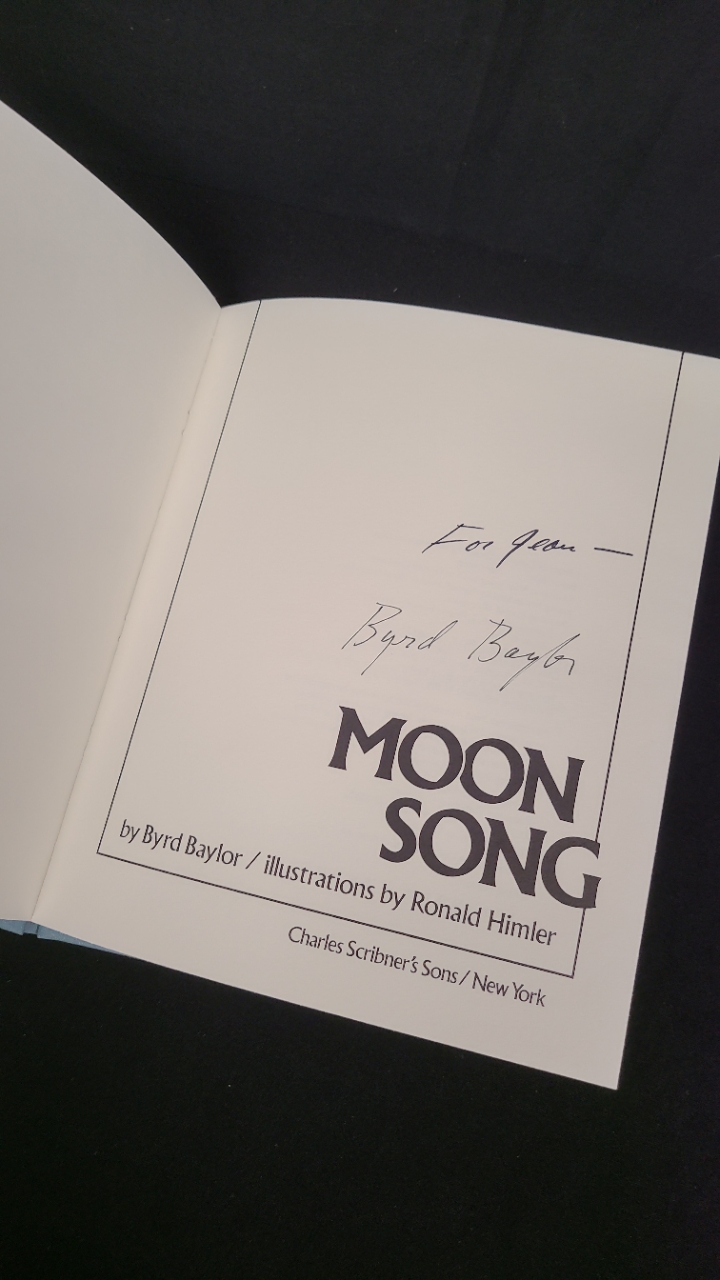 For Jean —
Byrd Baylor
MOON
SONG
by Byrd Baylor / illustrations by Ronald Himler
Charles Scribner's Sons / New York